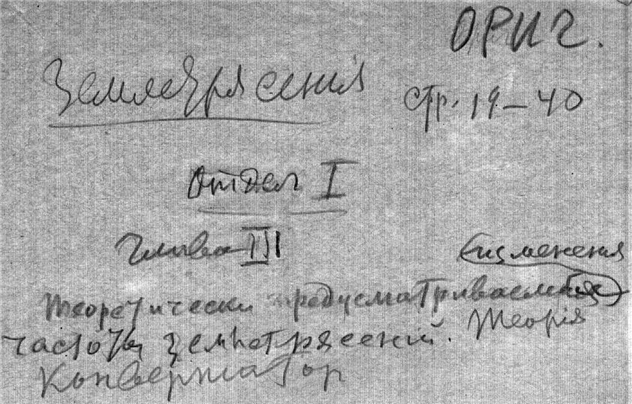 ОРИГ.
Землетрясенія стр. 19–40
Отдел I
Глава III
(изменения
Теоретически предусматриваемыя
частоты землетрясений. Теорія
Конвергматор